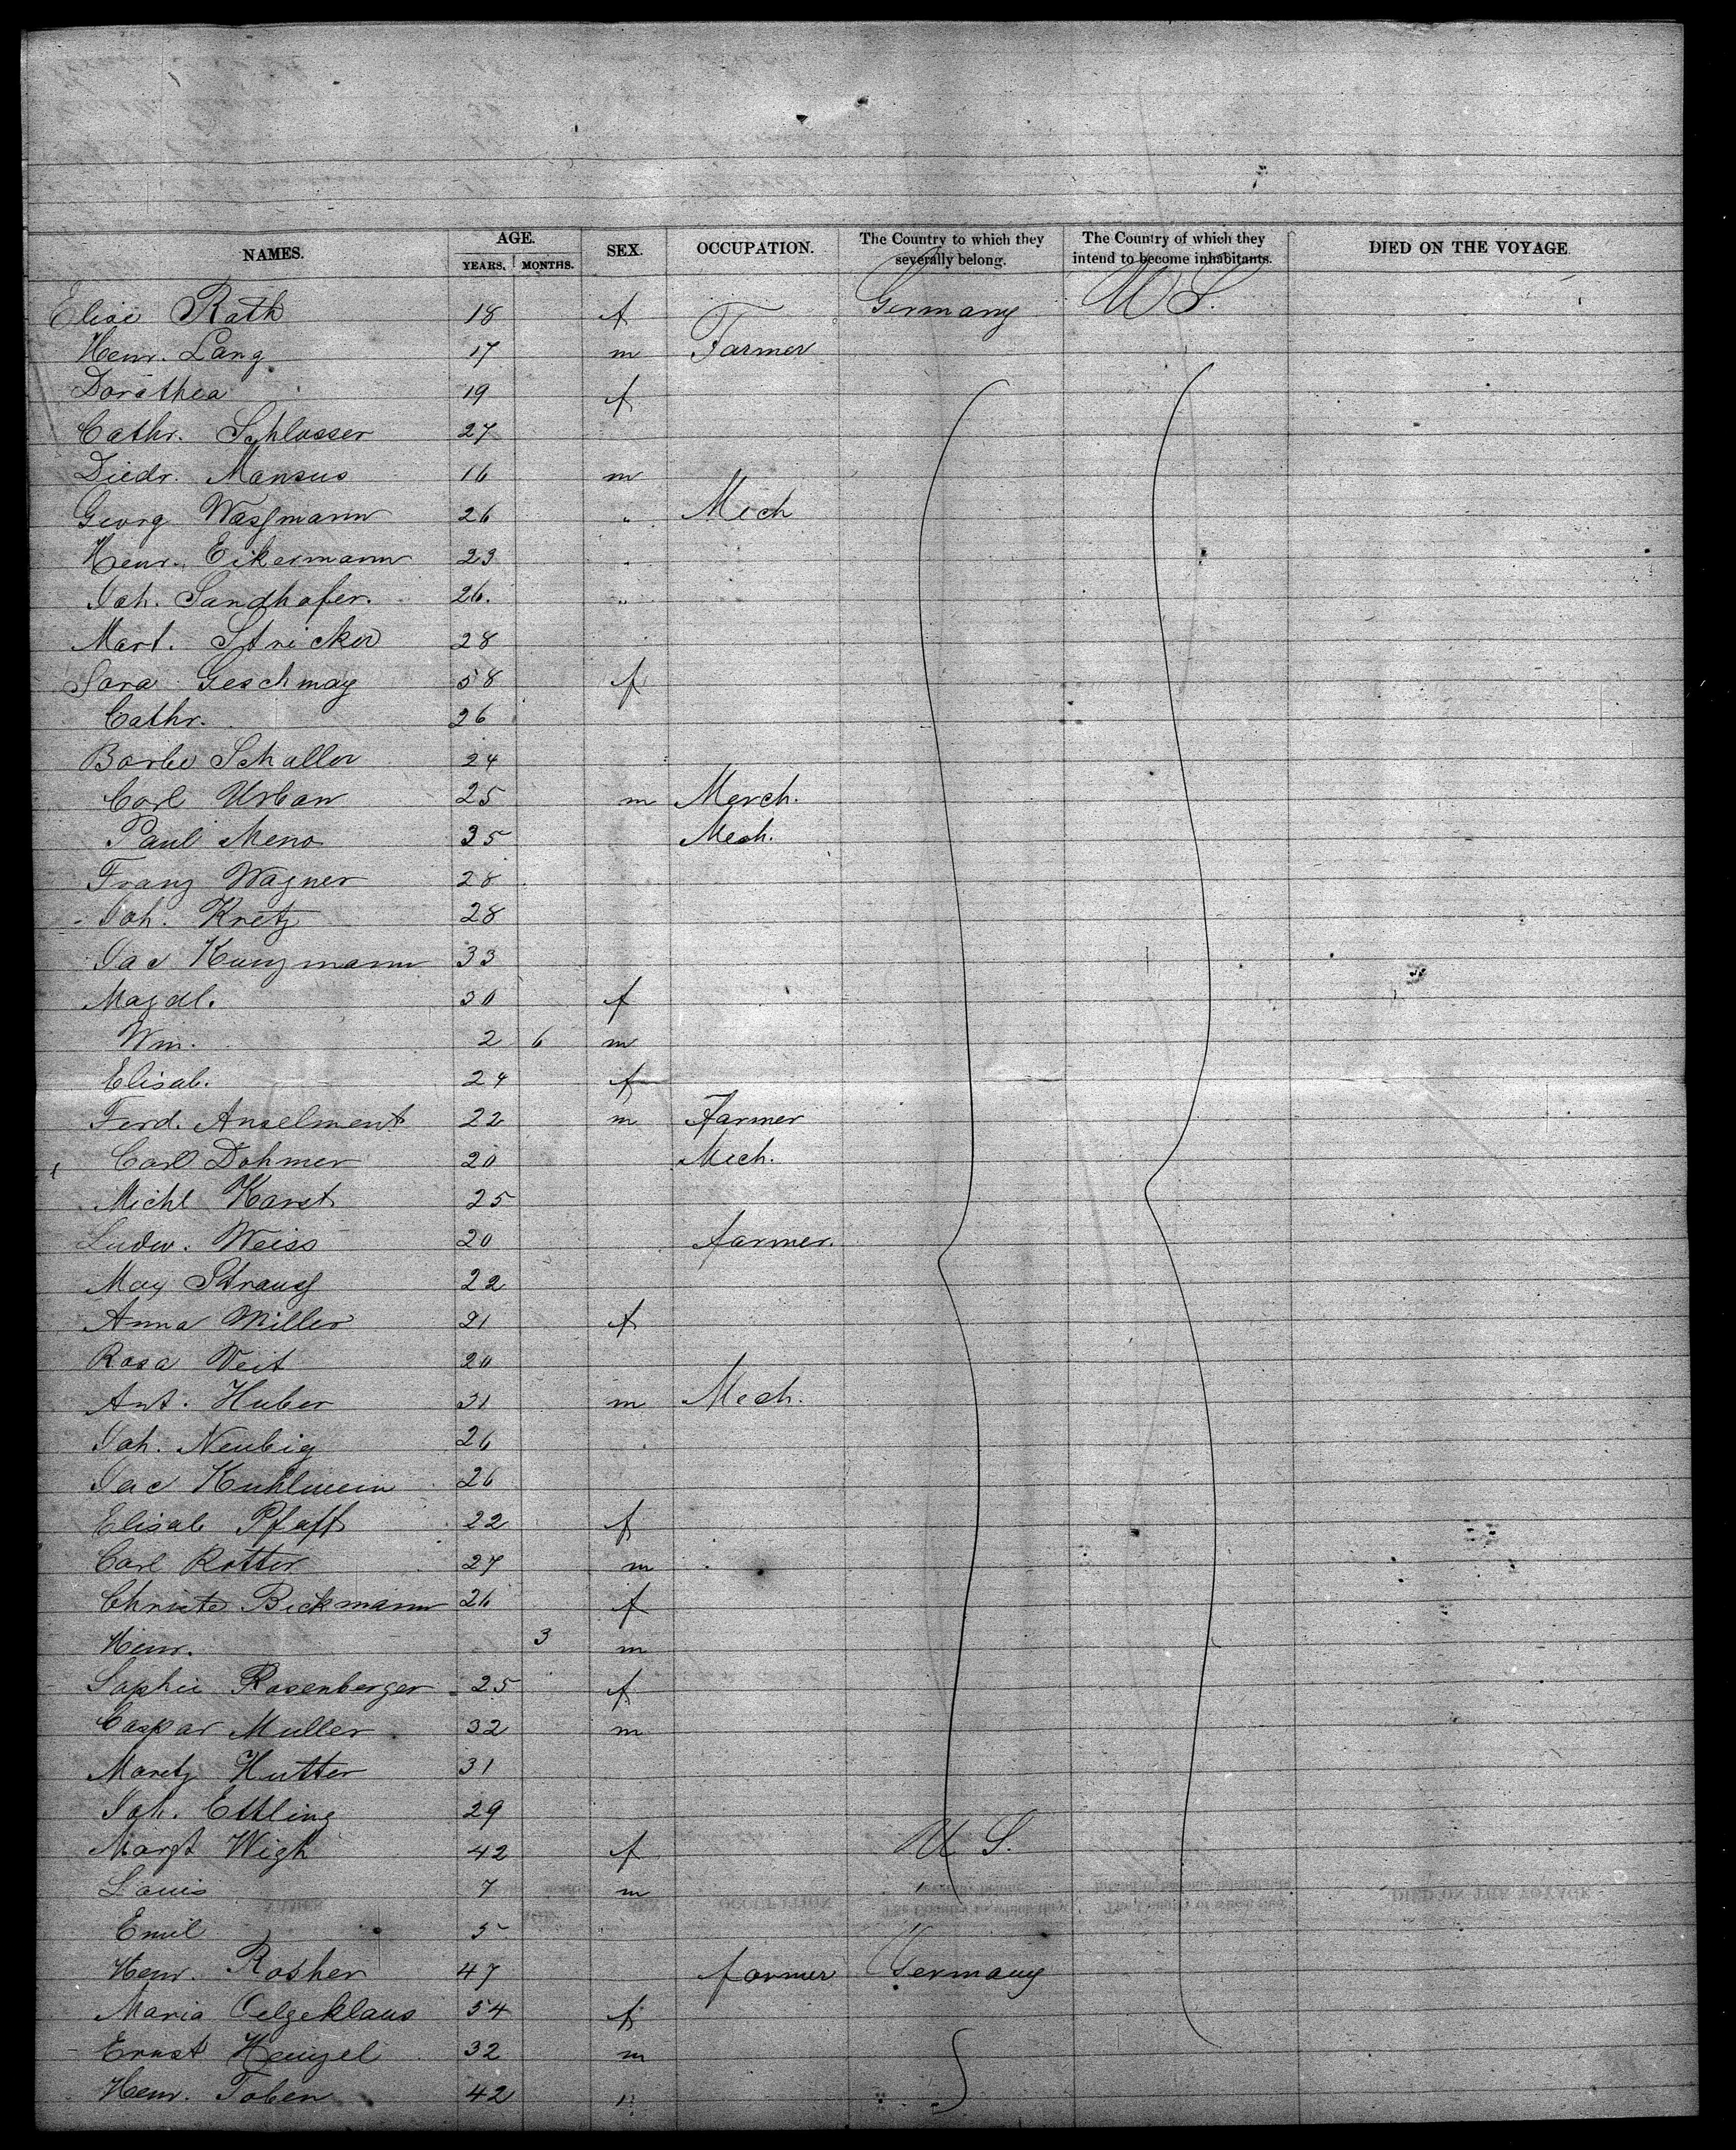 NAMES. AGE. SEX. OCCUPATION. The Country to which they severally belong. The Country of which they intend to become inhabitants. DIED ON THE VOYAGE
YEARS. MONTHS.
Elise Roth 18 f Germany U S.
Henr. Lang 17 m Farmer
Dorothea 19 f
Cathr. Schlosser 27
Diedr. Mansus 16 m
Georg Wassmann 26 " Mech
Henr. Eikermann 23 "
Joh. Sandhofer. 26. "
Mart. Stricker 28
Sara Geschmay 58 f
Cathr. 26
Barbe Schaller 24
Carl Urban 25 m Merch.
Paul Meno 35 Mech.
Franz Wagner 28
Joh. Kretz 28
Jac Kunzmann 33
Magdl. 30 f
Wm. 2 6 m
Elisab. 24 f
Ferd. Anselment 22 m Farmer
Carl Dohmer 20 Mech.
Michl Karst 25
Ludw. Weiss 20 farmer.
Max Strauss 22
Anna Miller 21 f
Rosa Veit 20
Ant. Huber 31 m Mech.
Joh. Neubig 26
Jac Kuhlwein 26
Elisab Pfaff 22 f
Carl Rotter 27 m
Christe Bickmann 26 f
Henr. 3 m
Sophie Rosenberger 25 f
Caspar Muller 32 m
Moretz Hutter 31
Joh. Ettling 29
Margt Wigh 42 f U S.
Louis 7 m "
Emil 5 "
Henr. Rosher 47 farmer Germany
Maria Oelgeklaus 54 f
Ernst Henzel 32 m
Henr. Toben 42 "